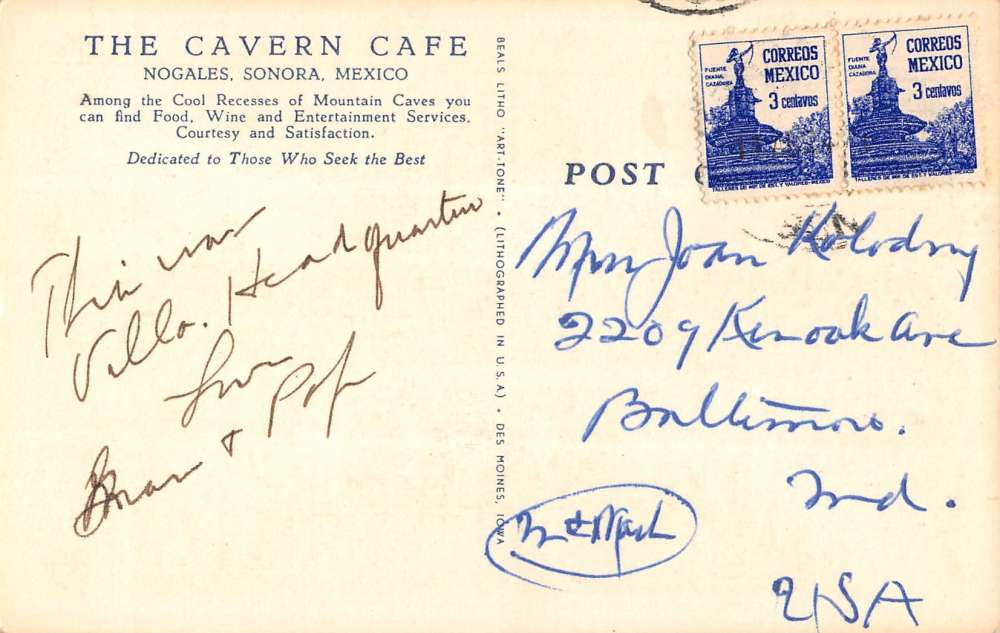 THE CAVERN CAFE
NOGALES, SONORA, MEXICO
Among the Cool Recesses of Mountain Caves you
can find Food, Wine and Entertainment Services,
Courtesy and Satisfaction.
Dedicated to Those Who Seek the Best
This was
Villa. Headquarters
Love
& Pop
BEALS LITHO "ART-TONE" • (LITHOGRAPHED IN U. S. A.) • DES MOINES, IOWA
FUENTE
DIANA
CAZADORA
CORREOS
MEXICO
3 centavos
TALLERES DE IMP. DE EST. Y VALORES-MEXICO
FUENTE
DIANA
CAZADORA
CORREOS
MEXICO
3 centavos
TALLERES DE IMP. DE EST. Y VALORES-MEXICO
POST
Joan Kolodny
2209 Kenoak Ave
Baltimore.
Md.
USA